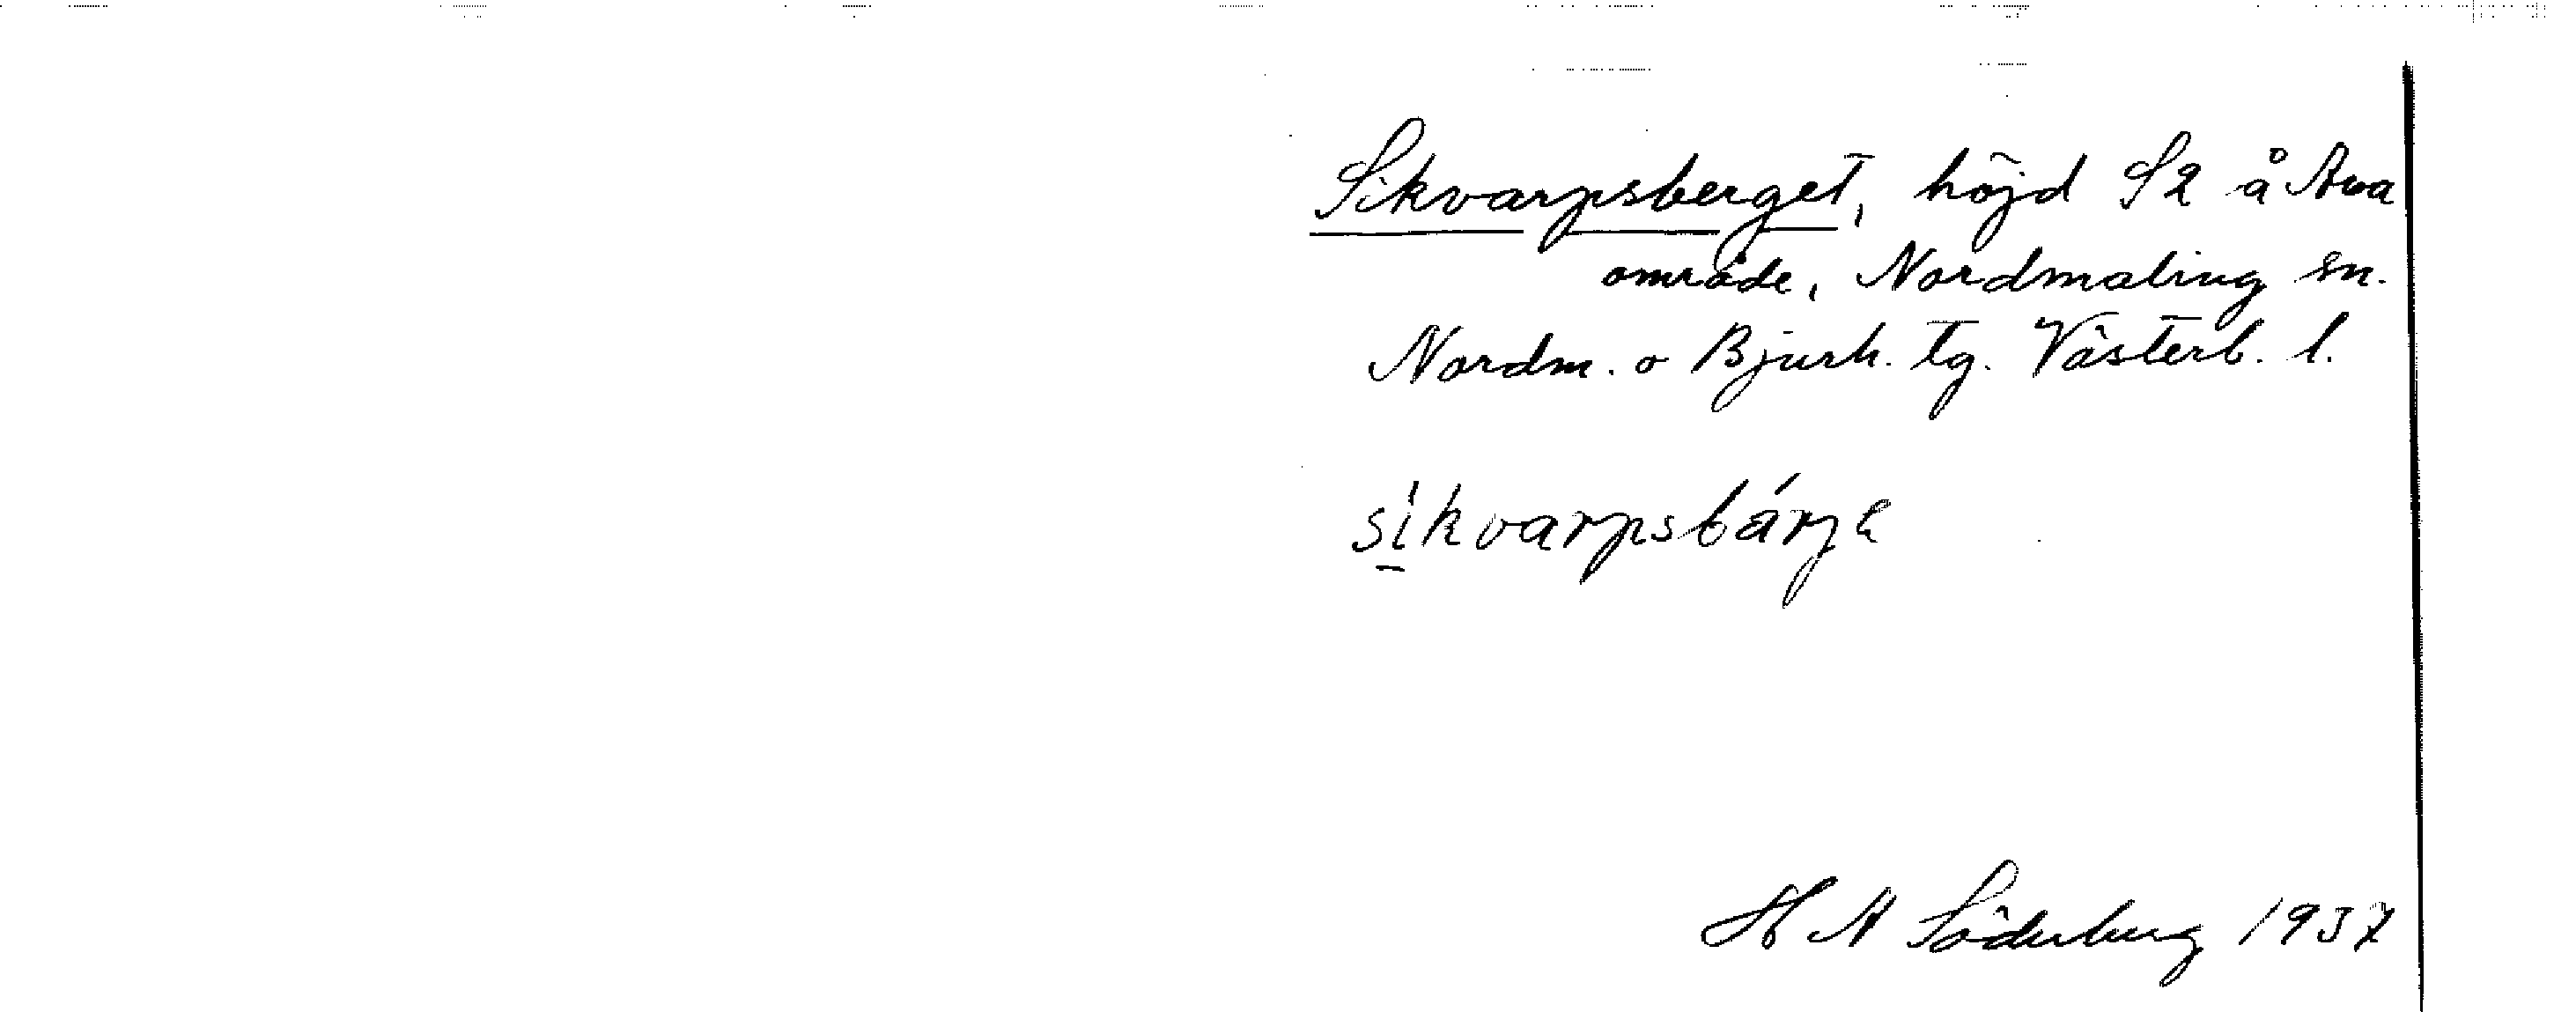 Sikvarpsberget, höjd S2 å Ava
område, Nordmaling sn.
Nordm. o Bjurh. tg. Västerb. l.
síkvarpsbárje
H A Söderberg 1937